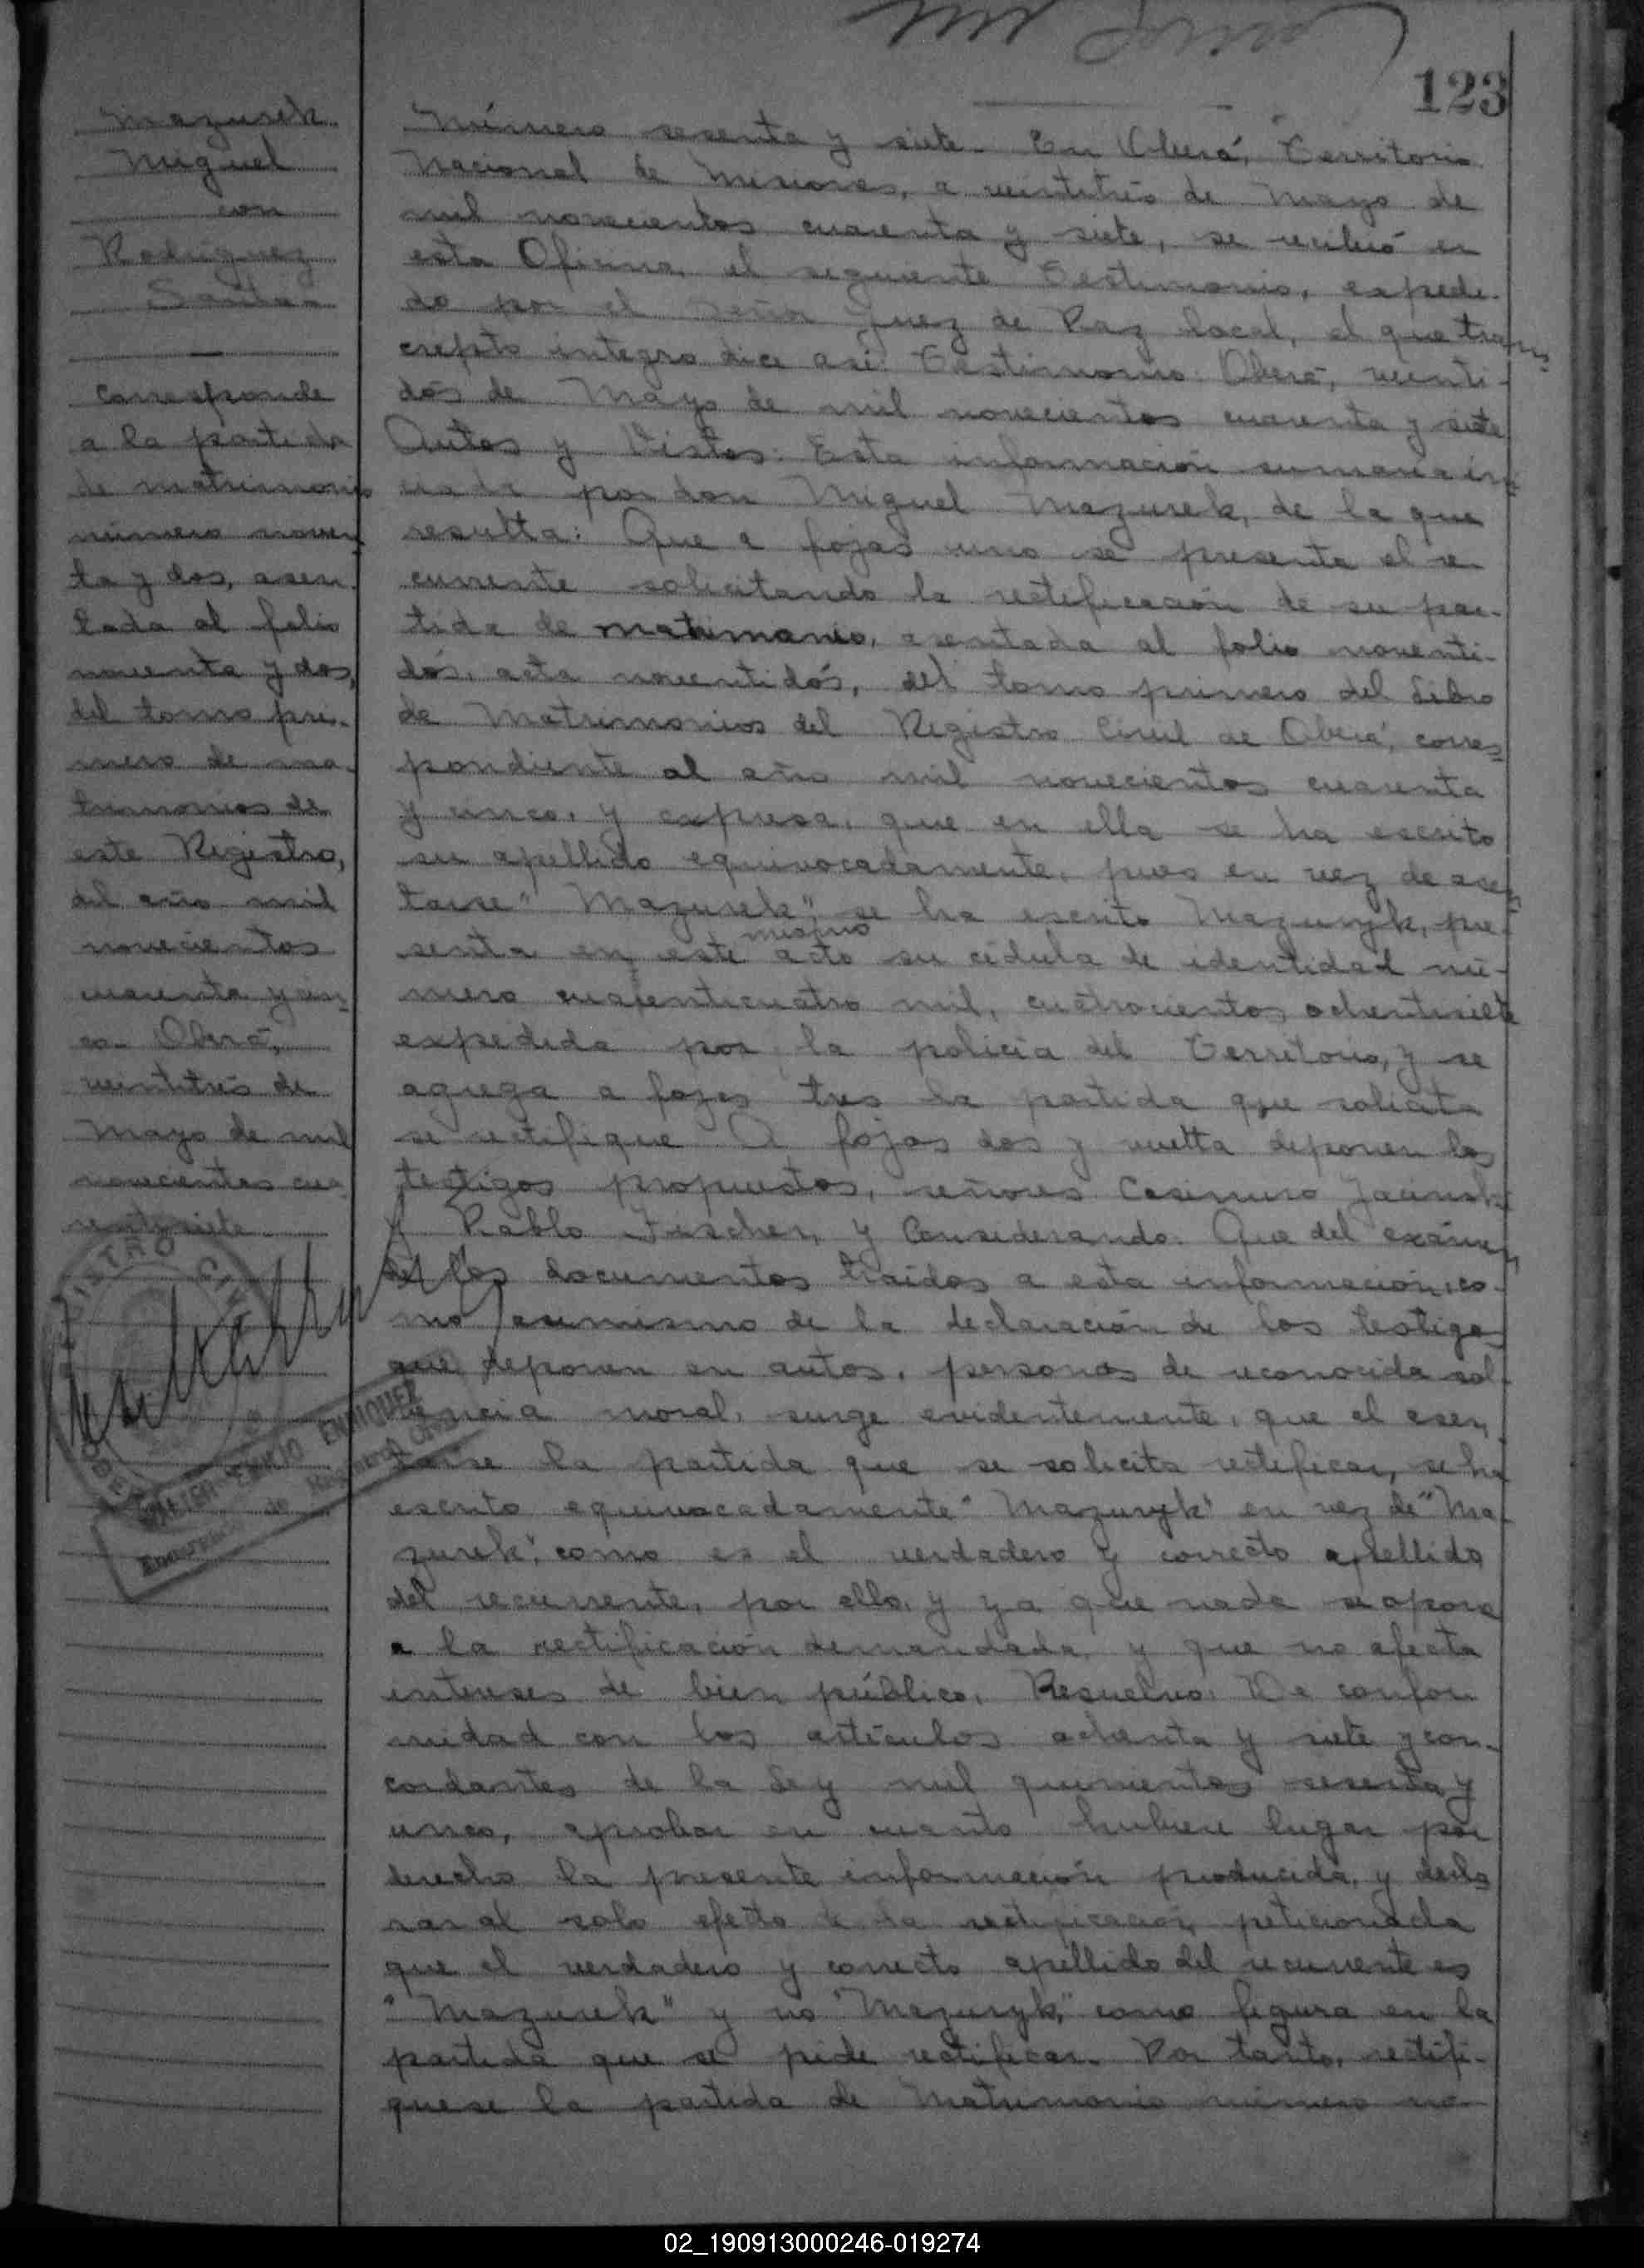 123
Mazurek
Miguel
con
Rodriguez
corresponde
a la partida
de matrimonio
número noven
ta y dos, asen
tada al folio
noventa y dos,
del tomo pri-
mero de ma-
trimonios de
este Registro,
del año mil
novecientos
cuarenta y cin
co. Oberá,
veintitrés de
Mayo de mil
novecientos cua
rentisiete
REGISTRO CIVIL
EMILIO ENRIQUEZ
Número sesenta y siete. En Oberá, Territorio
Nacional de Misiones, a veintitrés de Mayo de
mil novecientos cuarenta y siete, se recibió en
esta Oficina, el siguiente Testimonio, expedi-
do por el Señor Juez de Paz local, el que trans
cripto integro dice así: Testimonio: Oberá, veinti-
dós de Mayo de mil novecientos cuarenta y siete
Autos y Vistos: Esta información sumaria ini
ciada por don Miguel Mazurek, de la que
resulta: Que a fojas uno se presenta el re
currente solicitando la rectificación de su par-
tida de matrimonio, asentada al folio noventi-
dós, acta noventidós, del tomo primero del Libro
de Matrimonios del Registro Civil de Oberá, corres
pondiente al año mil novecientos cuarenta
y cinco, y expresa, que en ella se ha escrito
su apellido equivocadamente, pues en vez de asen
tarse "Mazurek", se ha escrito Mazuryk, pre-
mismo
senta en este acto su cédula de identidad nú-
mero cuarenticuatro mil, cuatrocientos ochentisiete
expedida por la policía del Territorio, y se
agrega a fojas tres la partida que solicita
se rectifique. A fojas dos y vuelta deponen los
testigos propuestos, señores Casimiro
y Pablo Fischer, y Considerando: Que del exámen
de los documentos traidos a esta información, co-
mo asimismo de la declaración de los testigos
que deponen en autos, personas de reconocida sol-
vencia moral, surge evidentemente, que al asen
tarse la partida que se solicita rectificar, se ha
escrito equivocadamente "Mazuryk" en vez de "Ma-
zurek", como es el verdadero y correcto apellido
del recurrente, por ello, y ya que nada se opone
a la rectificación demandada, y que no afecta
intereses de bien público, Resuelvo: De confor
midad con los artículos ochenta y siete y con-
cordantes de la Ley mil quinientos sesenta y
cinco, aprobar en cuanto hubiere lugar por
derecho la presente información producida, y decla
rar al solo efecto de la rectificación peticionada
que el verdadero y correcto apellido del recurrente es
"Mazurek" y no "Mazuryk," como figura en la
partida que se pide rectificar. Por tanto, rectifi-
quese la partida de Matrimonio número no-
02_190913000246-019274